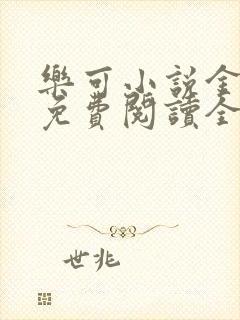 樂可小說全
免費閱讀全
世兆